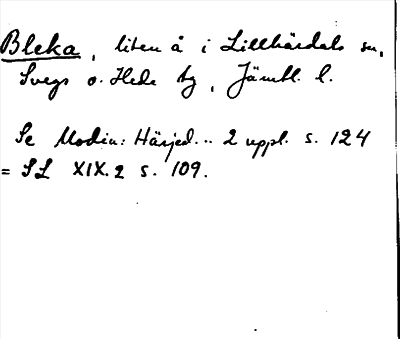 Bleka, liten å i Lillhärdals sn,
Svegs o. Hede tg, Jämtl. l.
Se Modin: Härjed... 2 uppl. s. 124
= SL XIX.2 s. 109.